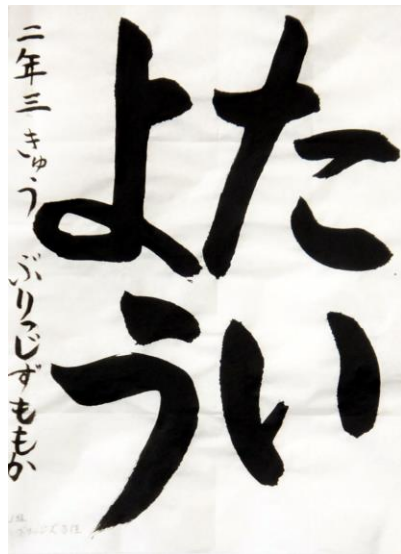 たい
よう
二年三きゅう ぶりつじずももか